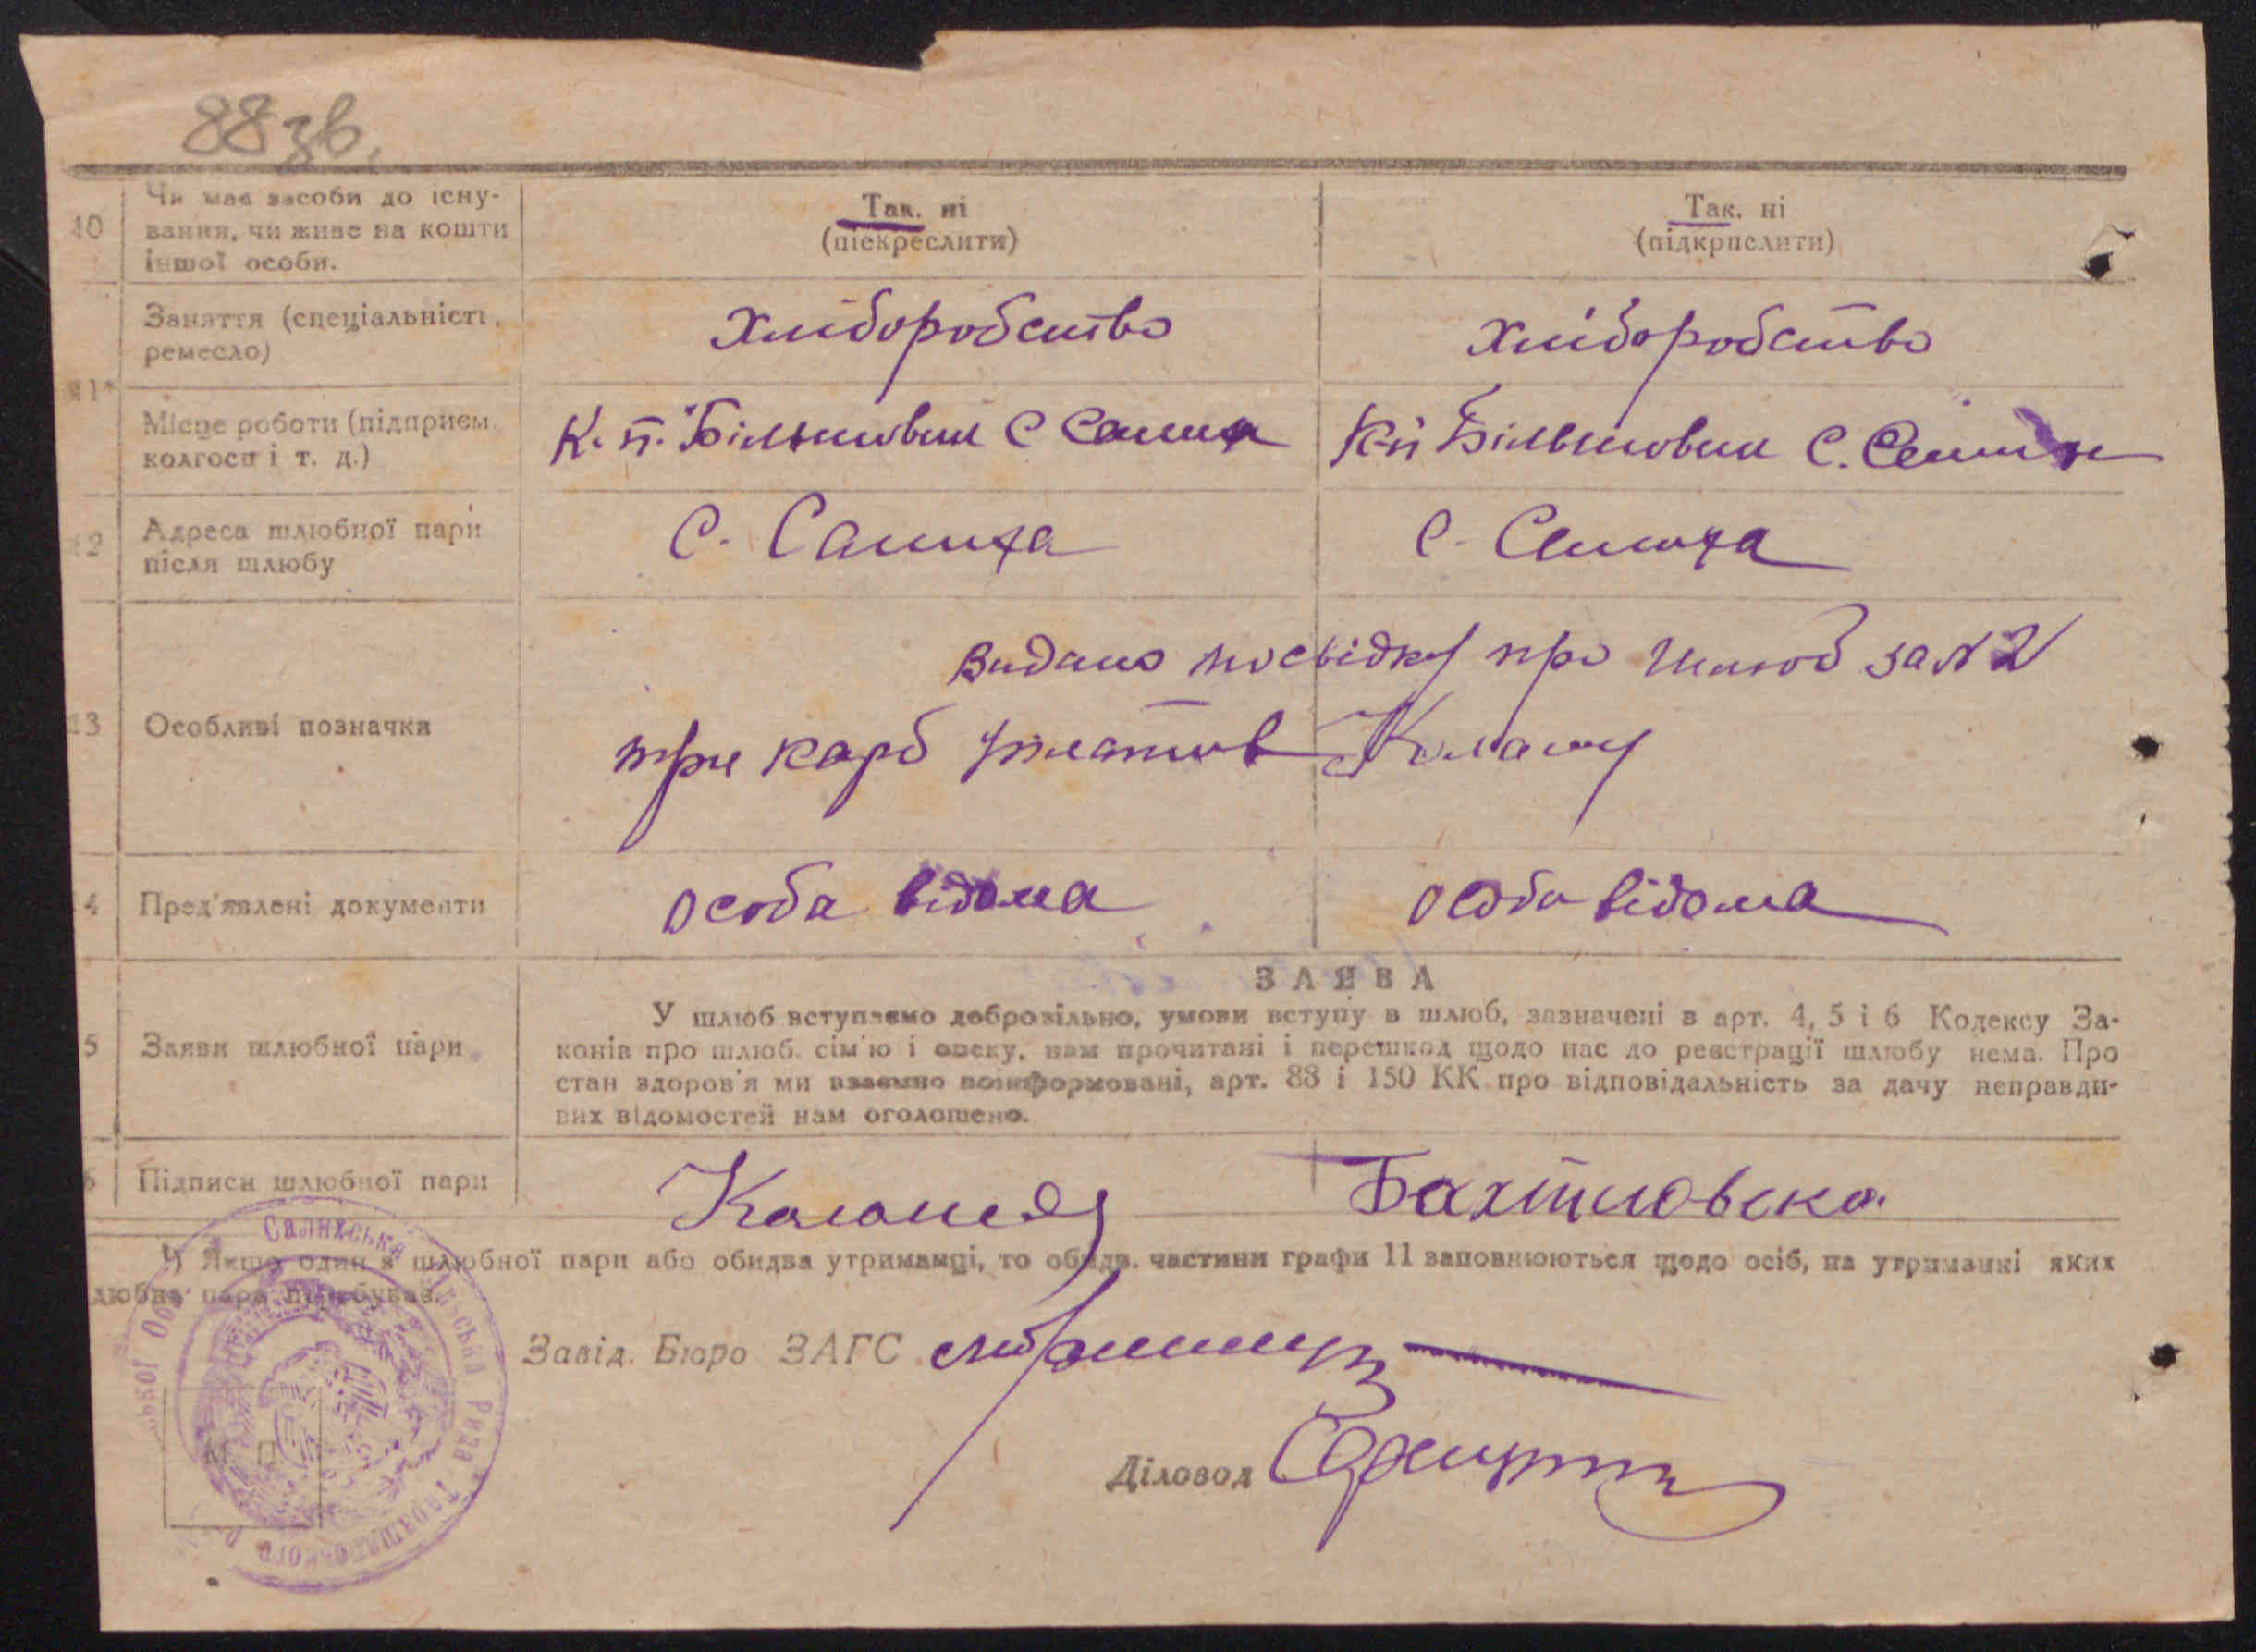 88 зв.
10 Чи має засоби до існу-
вання, чи живе на кошти
іншої особи.
Так. ні
(піскреслити)
Так. ні
(підкрпслити)
11*
Заняття (спеціальність,
ремесло)
Хліборобство
Хліборобство
Місце роботи (підприєм.
колгосп і т. д.)
К. п. Більшовик С Салиха
К п Більшовик С.
12 Адреса шлюбної пари
після шлюбу
С. Салиха
С. Салиха
13 Особливі позначки
Видано посвідку про шлюб за № 2
три карб уплатив
14 Пред'явлені документи
особа відома
особа відома
15 Заяви шлюбної пари
ЗАЯВА
У шлюб вступаємо добровільно, умови вступу в шлюб, зазначені в арт. 4, 5 і 6 Кодексу За-
конів про шлюб. сім'ю і опеку, нам прочитані і перешкод щодо нас до реєстрації шлюбу нема. Про
стан здоров'я ми взаємно поінформовані, арт. 88 і 150 КК про відповідальність за дачу неправди-
вих відомостей нам оголошено.
16 Підписи шлюбної пари
Бахтиовска
*) Якщо один з шлюбної пари або обидва утриманці, то обидв. частини графи 11 заповнюються щодо осіб, на утриманні яких
шлюбна пара перебуває.
Завід. Бюро ЗАГС
Діловод
М П
Салихська Сільська Рада Таращанського
ської Обл